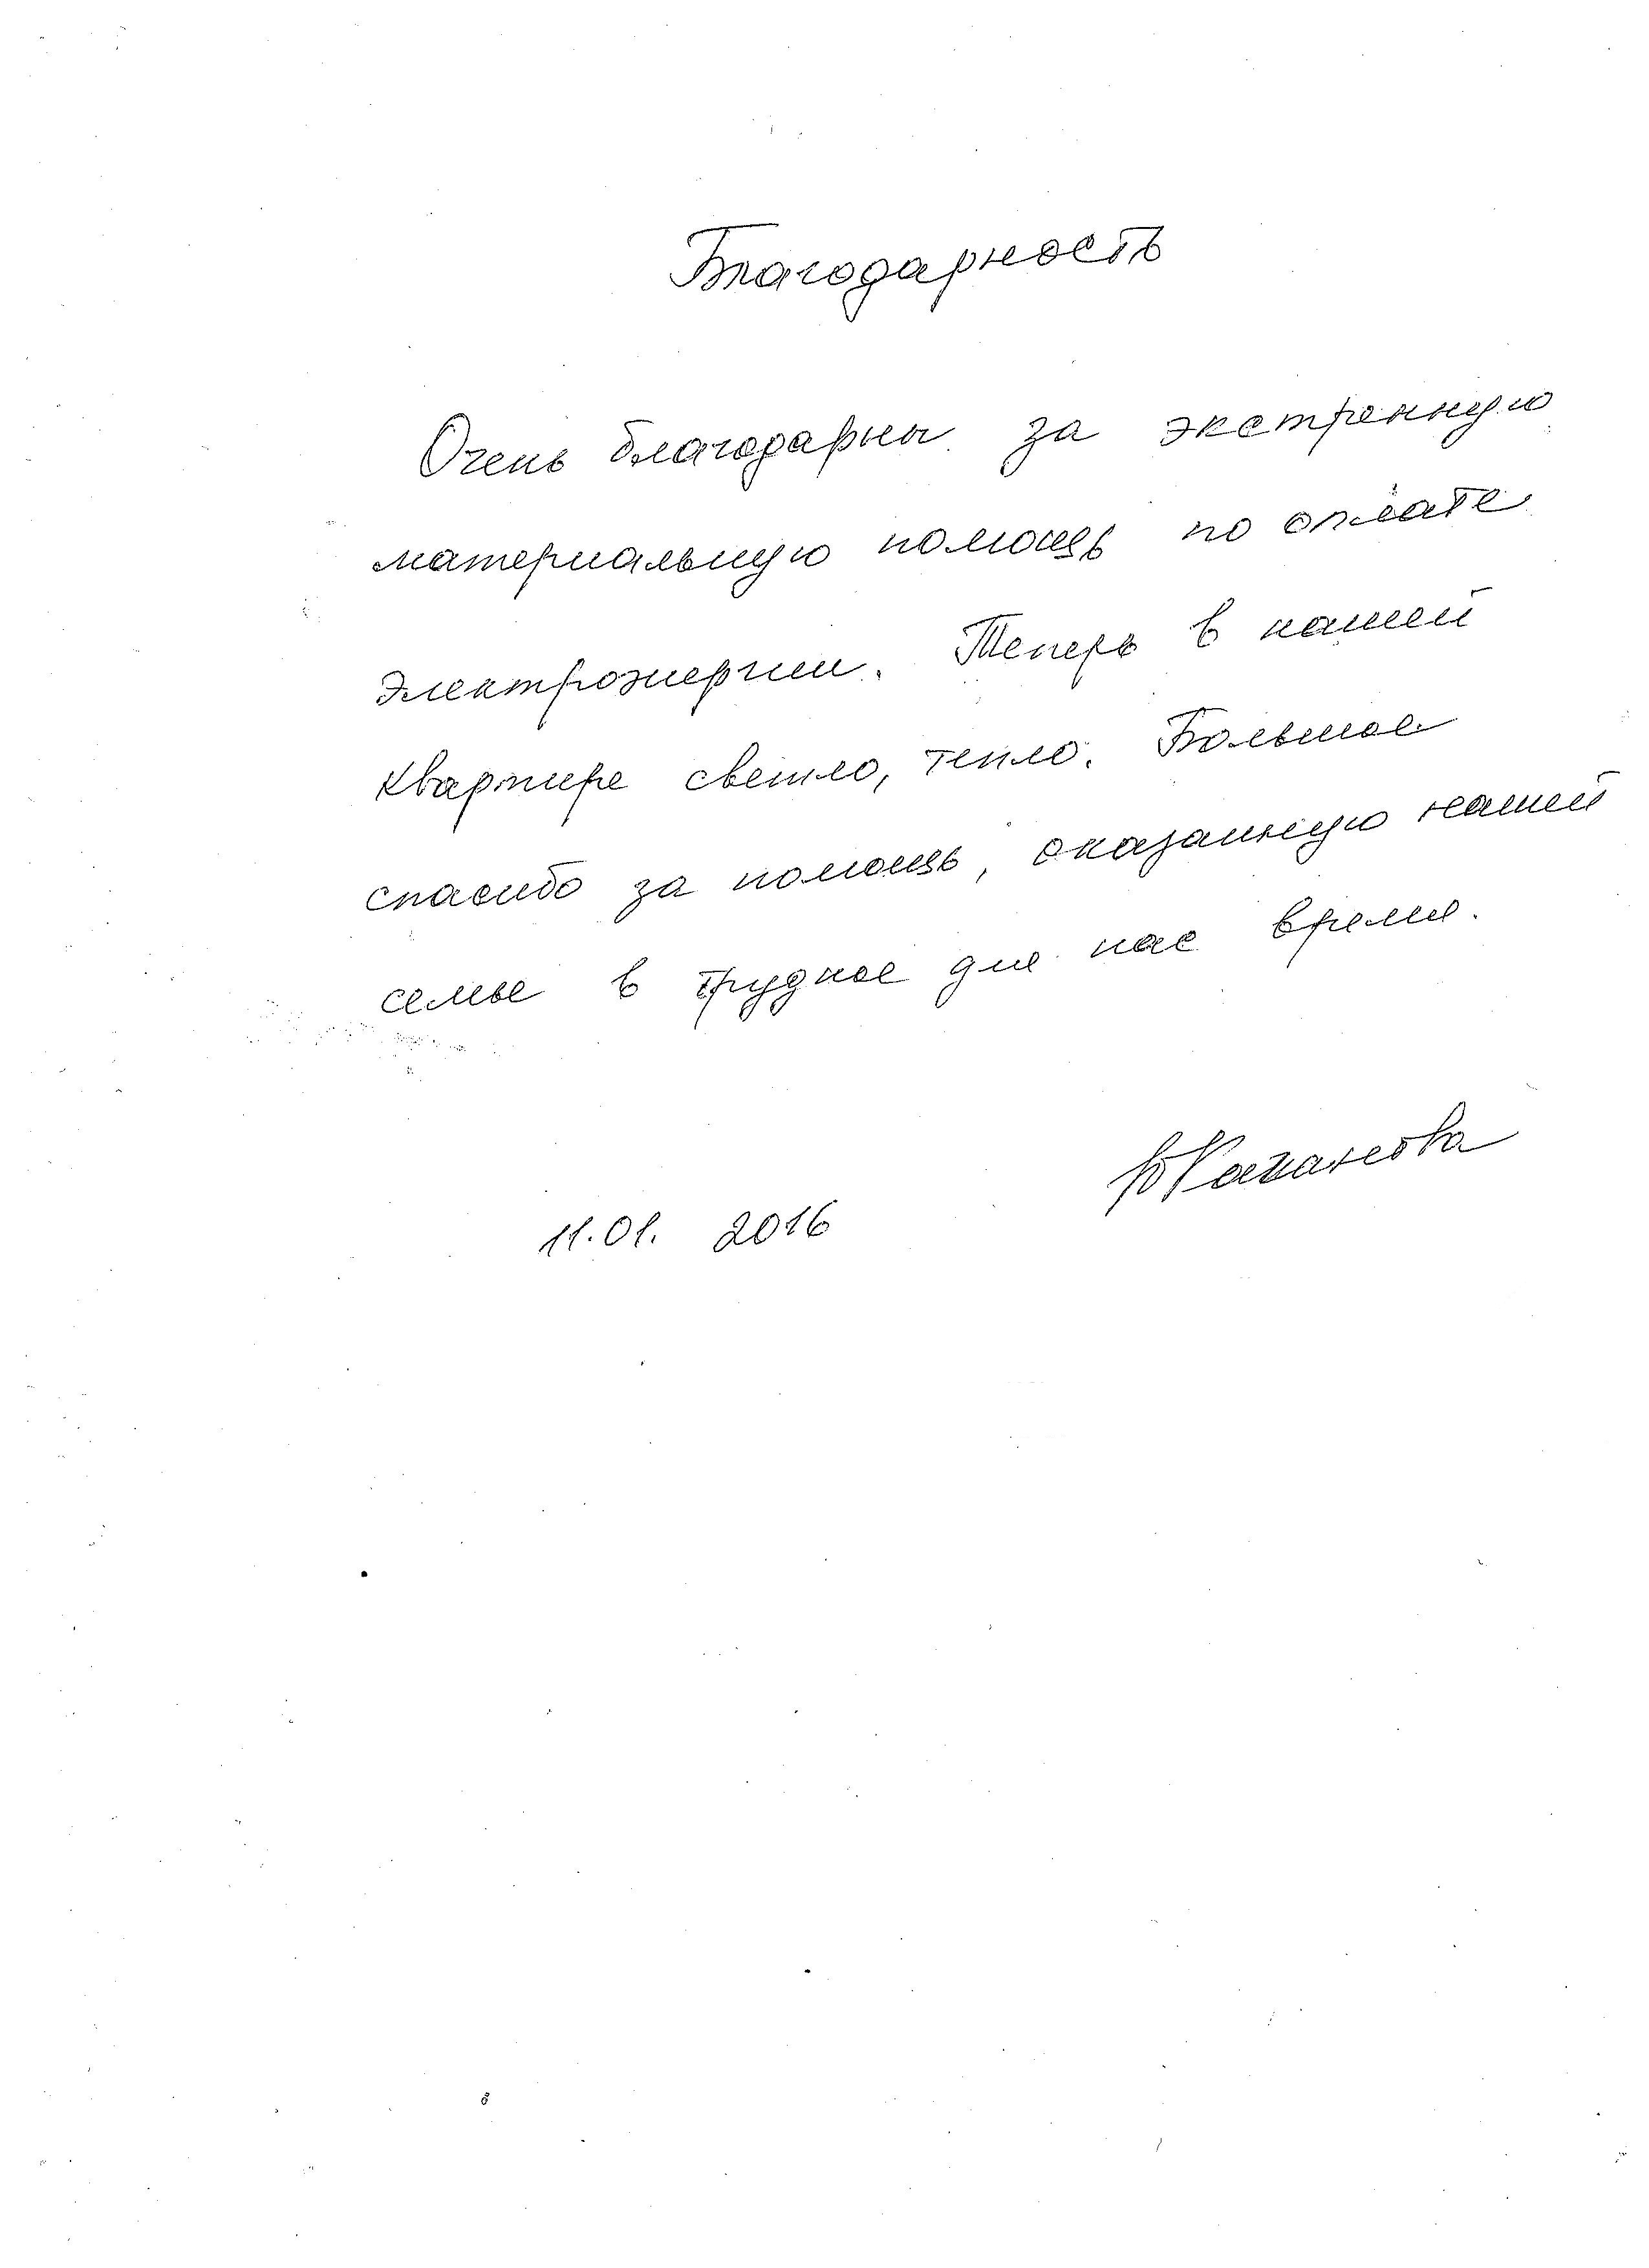 Благодарность
Очень благодарны за экстренную
материальную помощь по оплате
электроэнергии. Теперь в нашей
квартире светло, тепло. Большое
спасибо за помощь, оказанную нашей
семье в трудное для нас время.
11.01. 2016